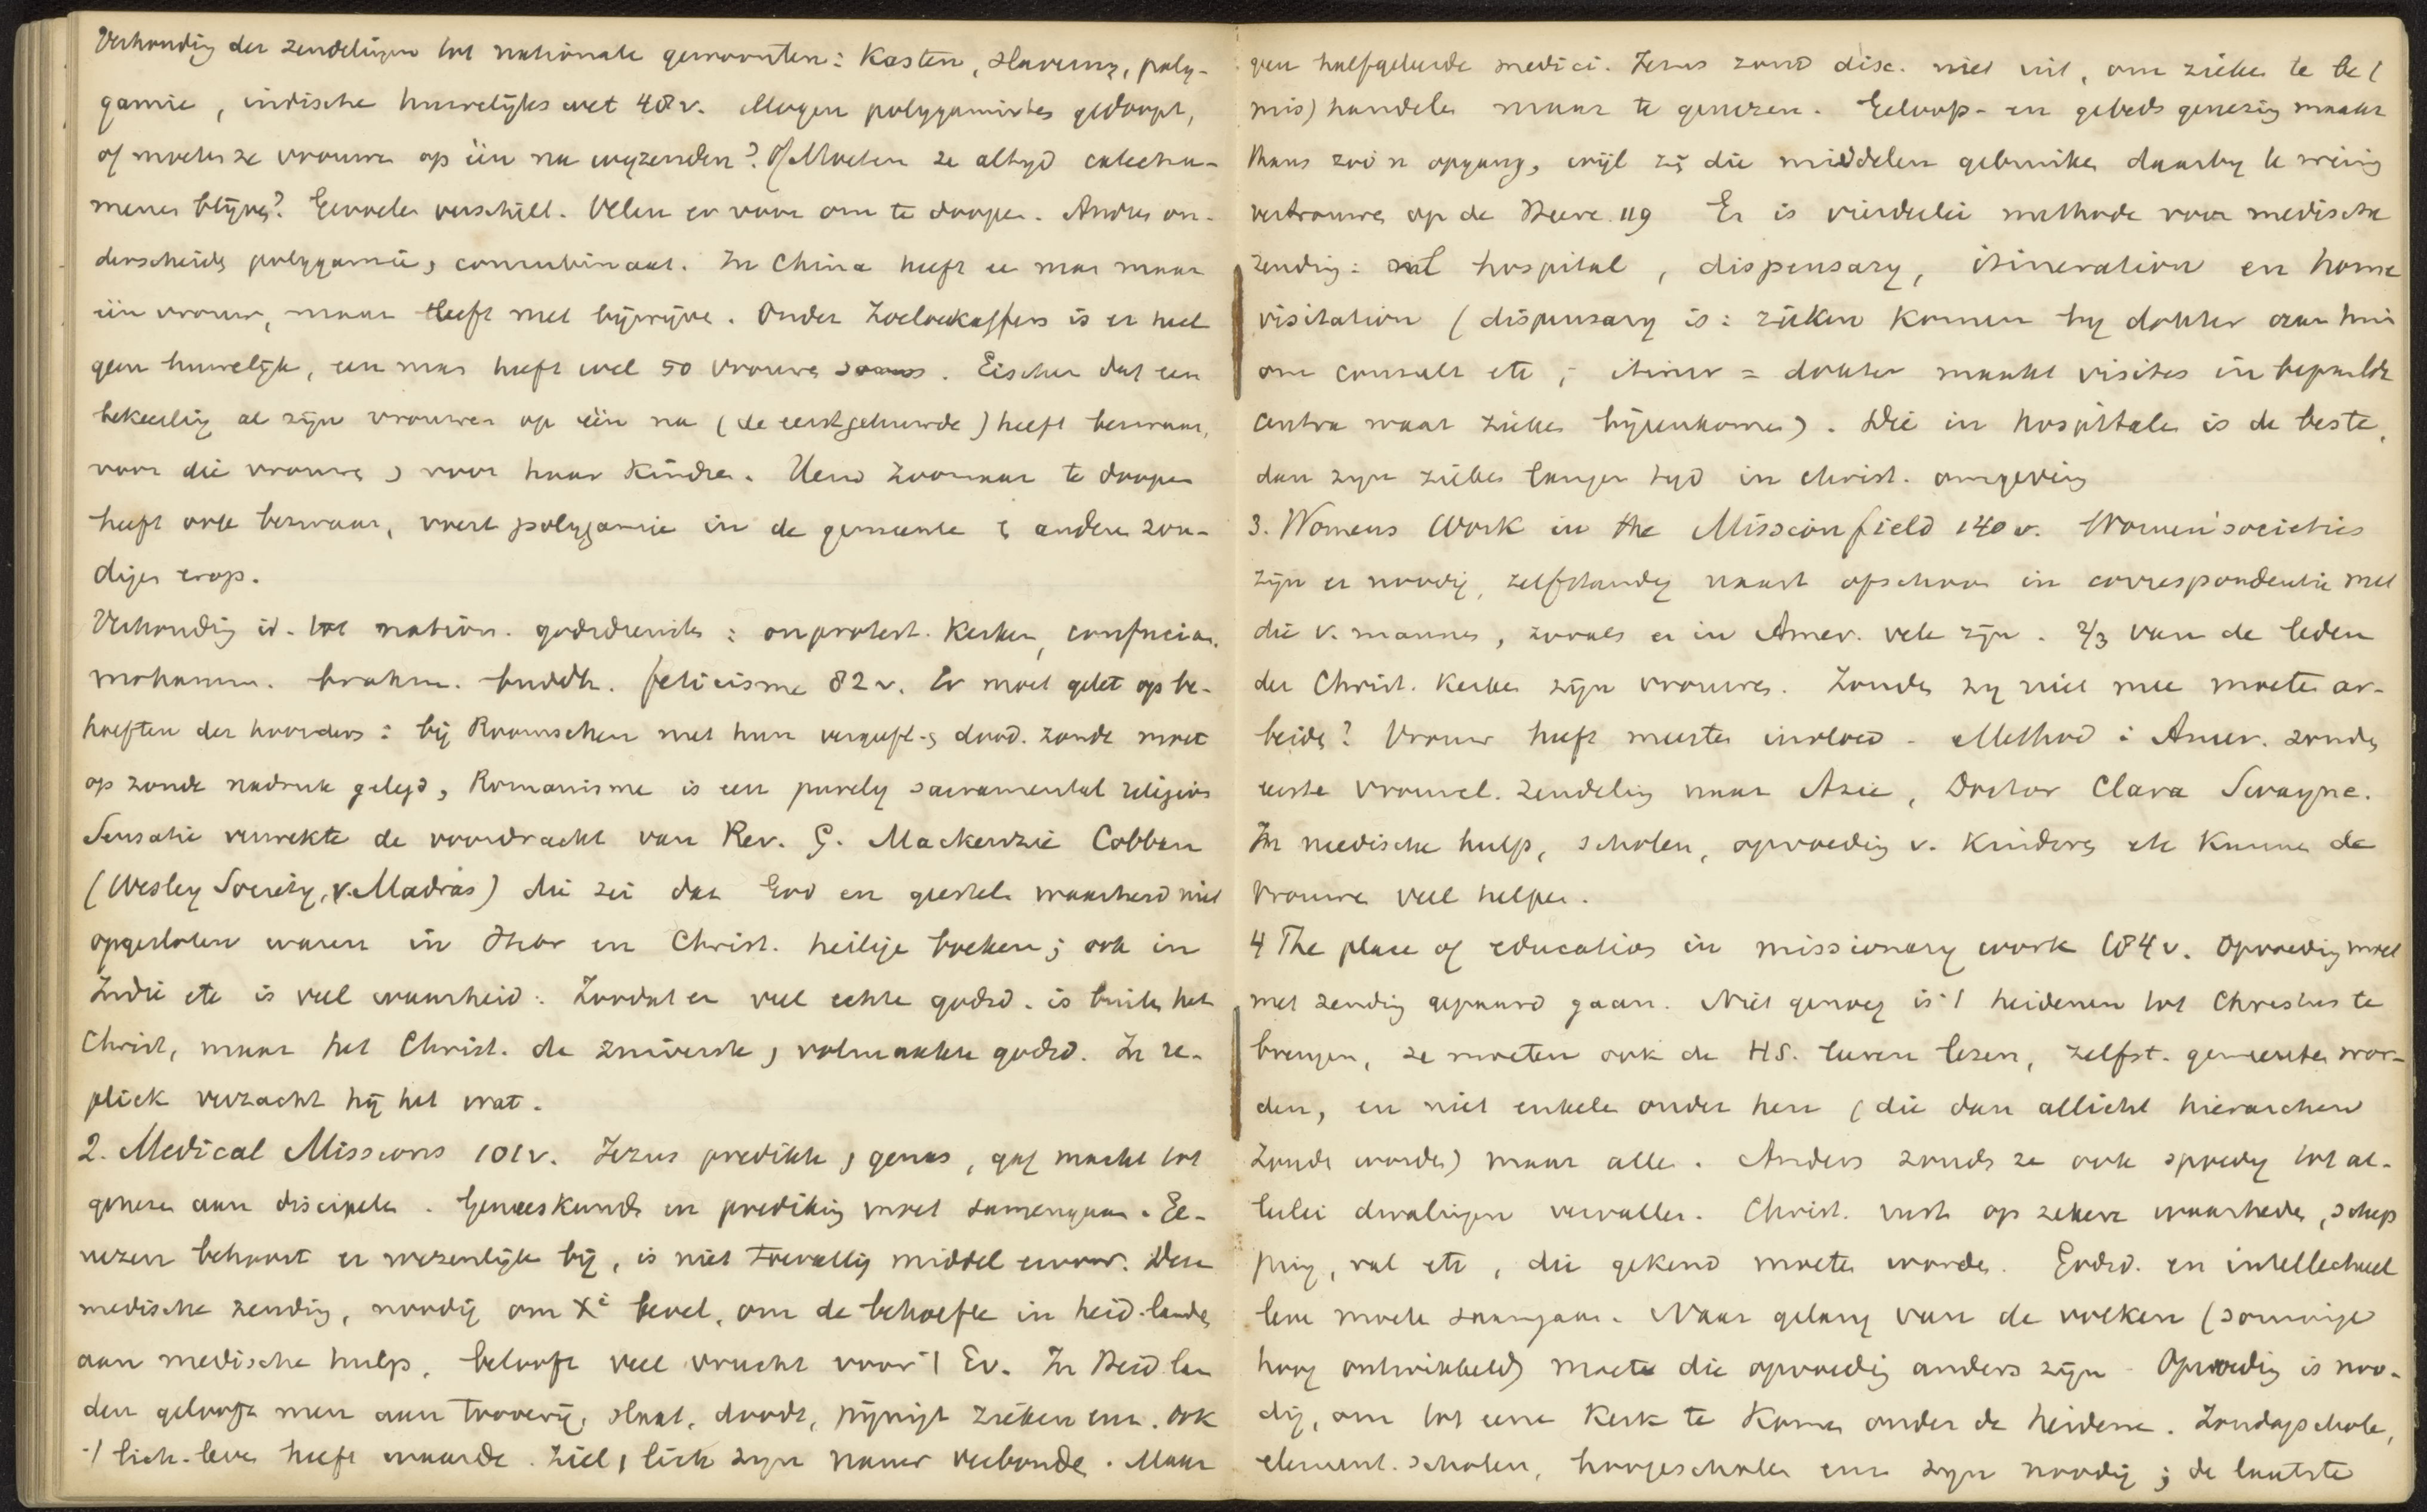 Verhouding der zendelingen tot nationale gewoonten: Kasten, slaverny, poly-
gamie, indische huwelijks wet 48 v. Mogen polygamisten gedoopt,
of moeten ze vrouwen op één na wegzenden? Of Moeten ze altyd catechu-
menen blijven? Gevoelen verschilt. Velen er voor om te doopen. Andren on-
derscheiden polygamie, concubinaat. In China heeft ee man maar
één vrouw, maar leeft met bijwijve. Onder Zoeloekaffers is er heel
geen huwelijk, een man heeft wel 50 vrouwen soms. Eischen dat een
bekeerling al zijn vrouwen op één na (de eerstgehuwde) heeft bezwaar,
voor die vrouwen, voor haar Kindren. Hem zoomaar te doopen
heeft ook bezwaar, voert polygamie in de gemeente & andere zon-
digen erop.
Verhouding id. tot nation. godsdiensten: onprotest. Kerken, confucian.
mohamm. brahm. buddh. feticisme 82 v. Er moet gelet op be-
hoeften der hoorders: bij Roomschen met hun vergefl. & dood. zonde moet
op zonde nadruk gelegd, Romanisme is een purely sacramental religion
Sensatie verwekte de voordracht van Rev. G. Mackenzie Cobban
(Wesley Society, v. Madras) die zei dat God en geestel. waarheid niet
opgesloten waren in Isr. en Christ. heilige boeken; ook in
Indië etc is veel waarheid. Zoodat er veel echte godsd. is buiten het
Christ, maar het Christ. de zuiverste, volmaakte godsd. In re-
pliek verzacht hij het wat.
2. Medical Missions 101 v. Jezus predikte, genas, gaf macht tot
genezen aan discipelen. Geneeskunde en prediking moet samengaan. Ge-
nezen behoort er wezenlijk bij, is niet toevallig middel ervoor. Deze
medische zending, noodig om Xi bevel, om de behoefte in heid. landen
aan medische hulp, belooft veel vrucht voor 't Ev. In Heid. lan
den gelooft men aan tooverij, slaat, doodt, pijnigt zieken enz. Ook
't lich. leven heeft waarde. Ziel, lich zyn nauw verbonden. Maar
geen halfgeleerde medici. Jezus zond disc. niet uit, om zieken te be (
mis) handelen maar te genezen. Geloofs- en gebeds genezing maakt
thans zoo'n opgang, wijl zij die middelen gebruiken daarby te weinig
vertrouwen op de Heere. 119 Er is vierderlei methode voor medische
zending: hospital, dispensary, itineration en home
visitation (dispensary is: zieken komen by dokter aan huis
om consult etc; itiner = dokter maakt visites in bepaalde
centra waar zieken bijeenkomen). Die in hospitalen is de beste,
dan zyn zieken langer tyd in christ. omgeving
3. Womens Work in the Missionfield 140 v. Women'societies
zijn er noodig, zelfstandig naast ofschoon in correspondentie met
die v. mannen, zooals er in Amer. vele zijn. 2/3 van de leden
der Christ. Kerken zijn vrouwen. Zouden zy niet mee moeten ar-
beiden? Vrouw heeft meesten invloed. Method: Amer. zonden
eerste vrouwel. zendeling naar Azie, Doctor Clara Swayne.
In medische hulp, scholen, opvoeding v. Kinderen etc kunnen de
vrouwen veel helpen.
4 The place of education in missionary work 184 v. Opvoeding moet
met zending gepaard gaan. Niet genoeg is 't heidenen tot Christus te
brengen, ze moeten ook de HS. leeren lezen, zelfst. gemeenten wor-
den, en niet enkelen onder hen (die dan allicht hierarchen
zouden worden) maar alle. Anders zouden ze ook spoedig tot al-
lerlei dwalingen vervallen. Christ. rust op zekere waarheden, schep
ping, val etc, die gekend moeten worden. Godsd. en intellectueel
leven moeten saamgaan. Naar gelang van de volken (sommige
hoog ontwikkeld) moete die opvoeding anders zijn. Opvoeding is noo-
dig, om tot eene Kerk te Komen onder de heidenen. Zondagschole,
element. scholen, hoogescholen enz zyn noodig; de laatste